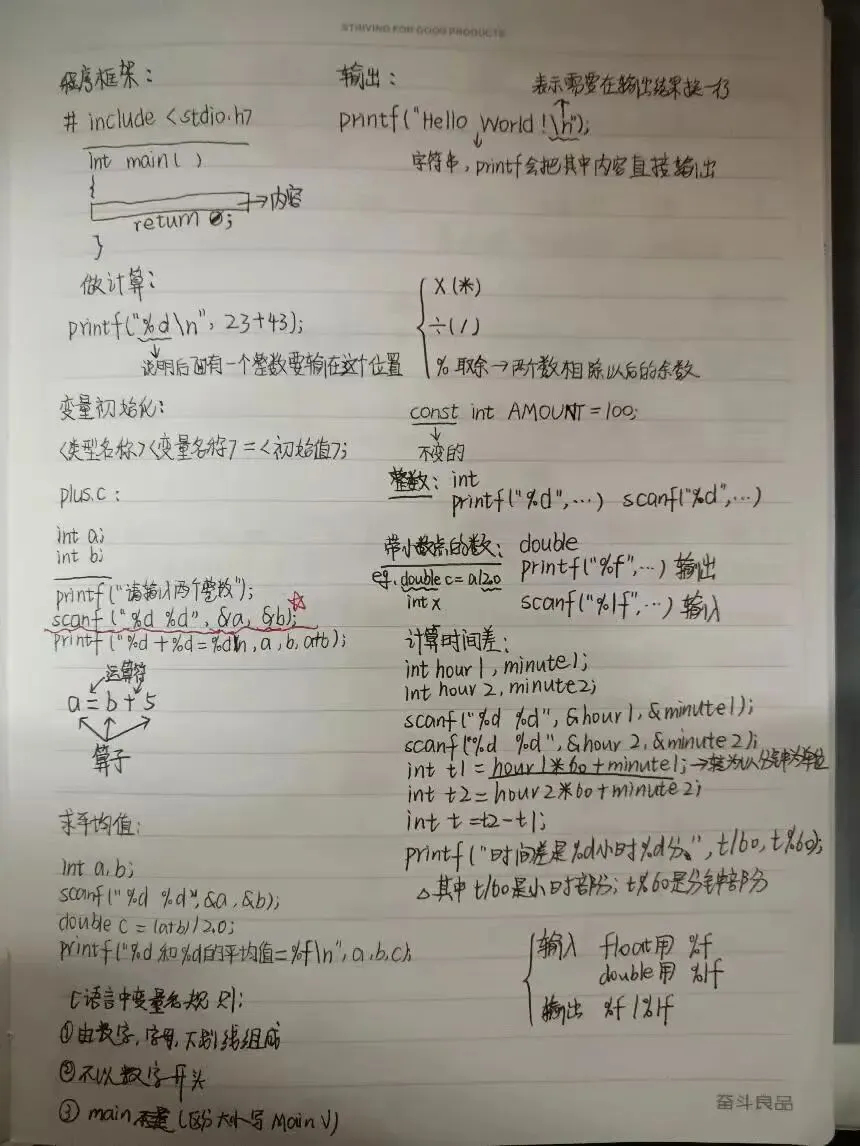 STRIVING FOR GOOD PRODUCTS
程序框架:
# include <stdio.h>
int main( )
{
→内容
return 0;
}
输出:
表示需要在输出结果换一行
printf("Hello World!\n");
字符串, printf会把其中内容直接输出
做计算:
printf("%d\n", 23+43);
说明后面有一个整数要输在这个位置
X(*)
÷(/)
% 取余→两个数相除以后的余数
变量初始化:
<类型名称><变量名称>=<初始值>;
plus.c:
int a;
int b;
printf("请输入两个整数");
scanf ("%d %d", &a, &b); ☆
printf("%d+%d=%d\n, a, b, a+b);
运算符
a=b+5
算子
求平均值:
int a,b;
scanf("%d %d",&a,&b);
double c = (a+b)/2.0;
printf("%d和%d的平均值=%f\n", a,b,c);
C语言中变量名规则:
①由数字,字母,下划线组成
②不以数字开头
③main (区分大小写 Main √)
const int AMOUNT=100;
不变的
整数: int
printf("%d",…) scanf("%d",…)
带小数点的数: double
eg. double c=a/2.0 printf("%f",…) 输出
int x scanf("%lf",…) 输入
计算时间差:
int hour1, minute1;
int hour2, minute2;
scanf("%d %d", &hour1, &minute1);
scanf("%d %d", &hour2, &minute2);
int t1 = hour1*60+minute1; →转为以分钟为单位
int t2=hour2*60+minute2;
int t=t2-t1;
printf("时间差是%d小时%d分。", t/60, t%60);
△其中t/60是小时部分; t%60是分钟部分
输入 float用 %f
double用 %lf
输出 %f/%lf
奋斗良品